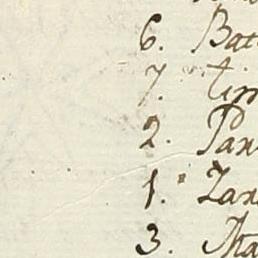 6. Batt
7. Tim
2. Pan
1. Zan
3. Tha